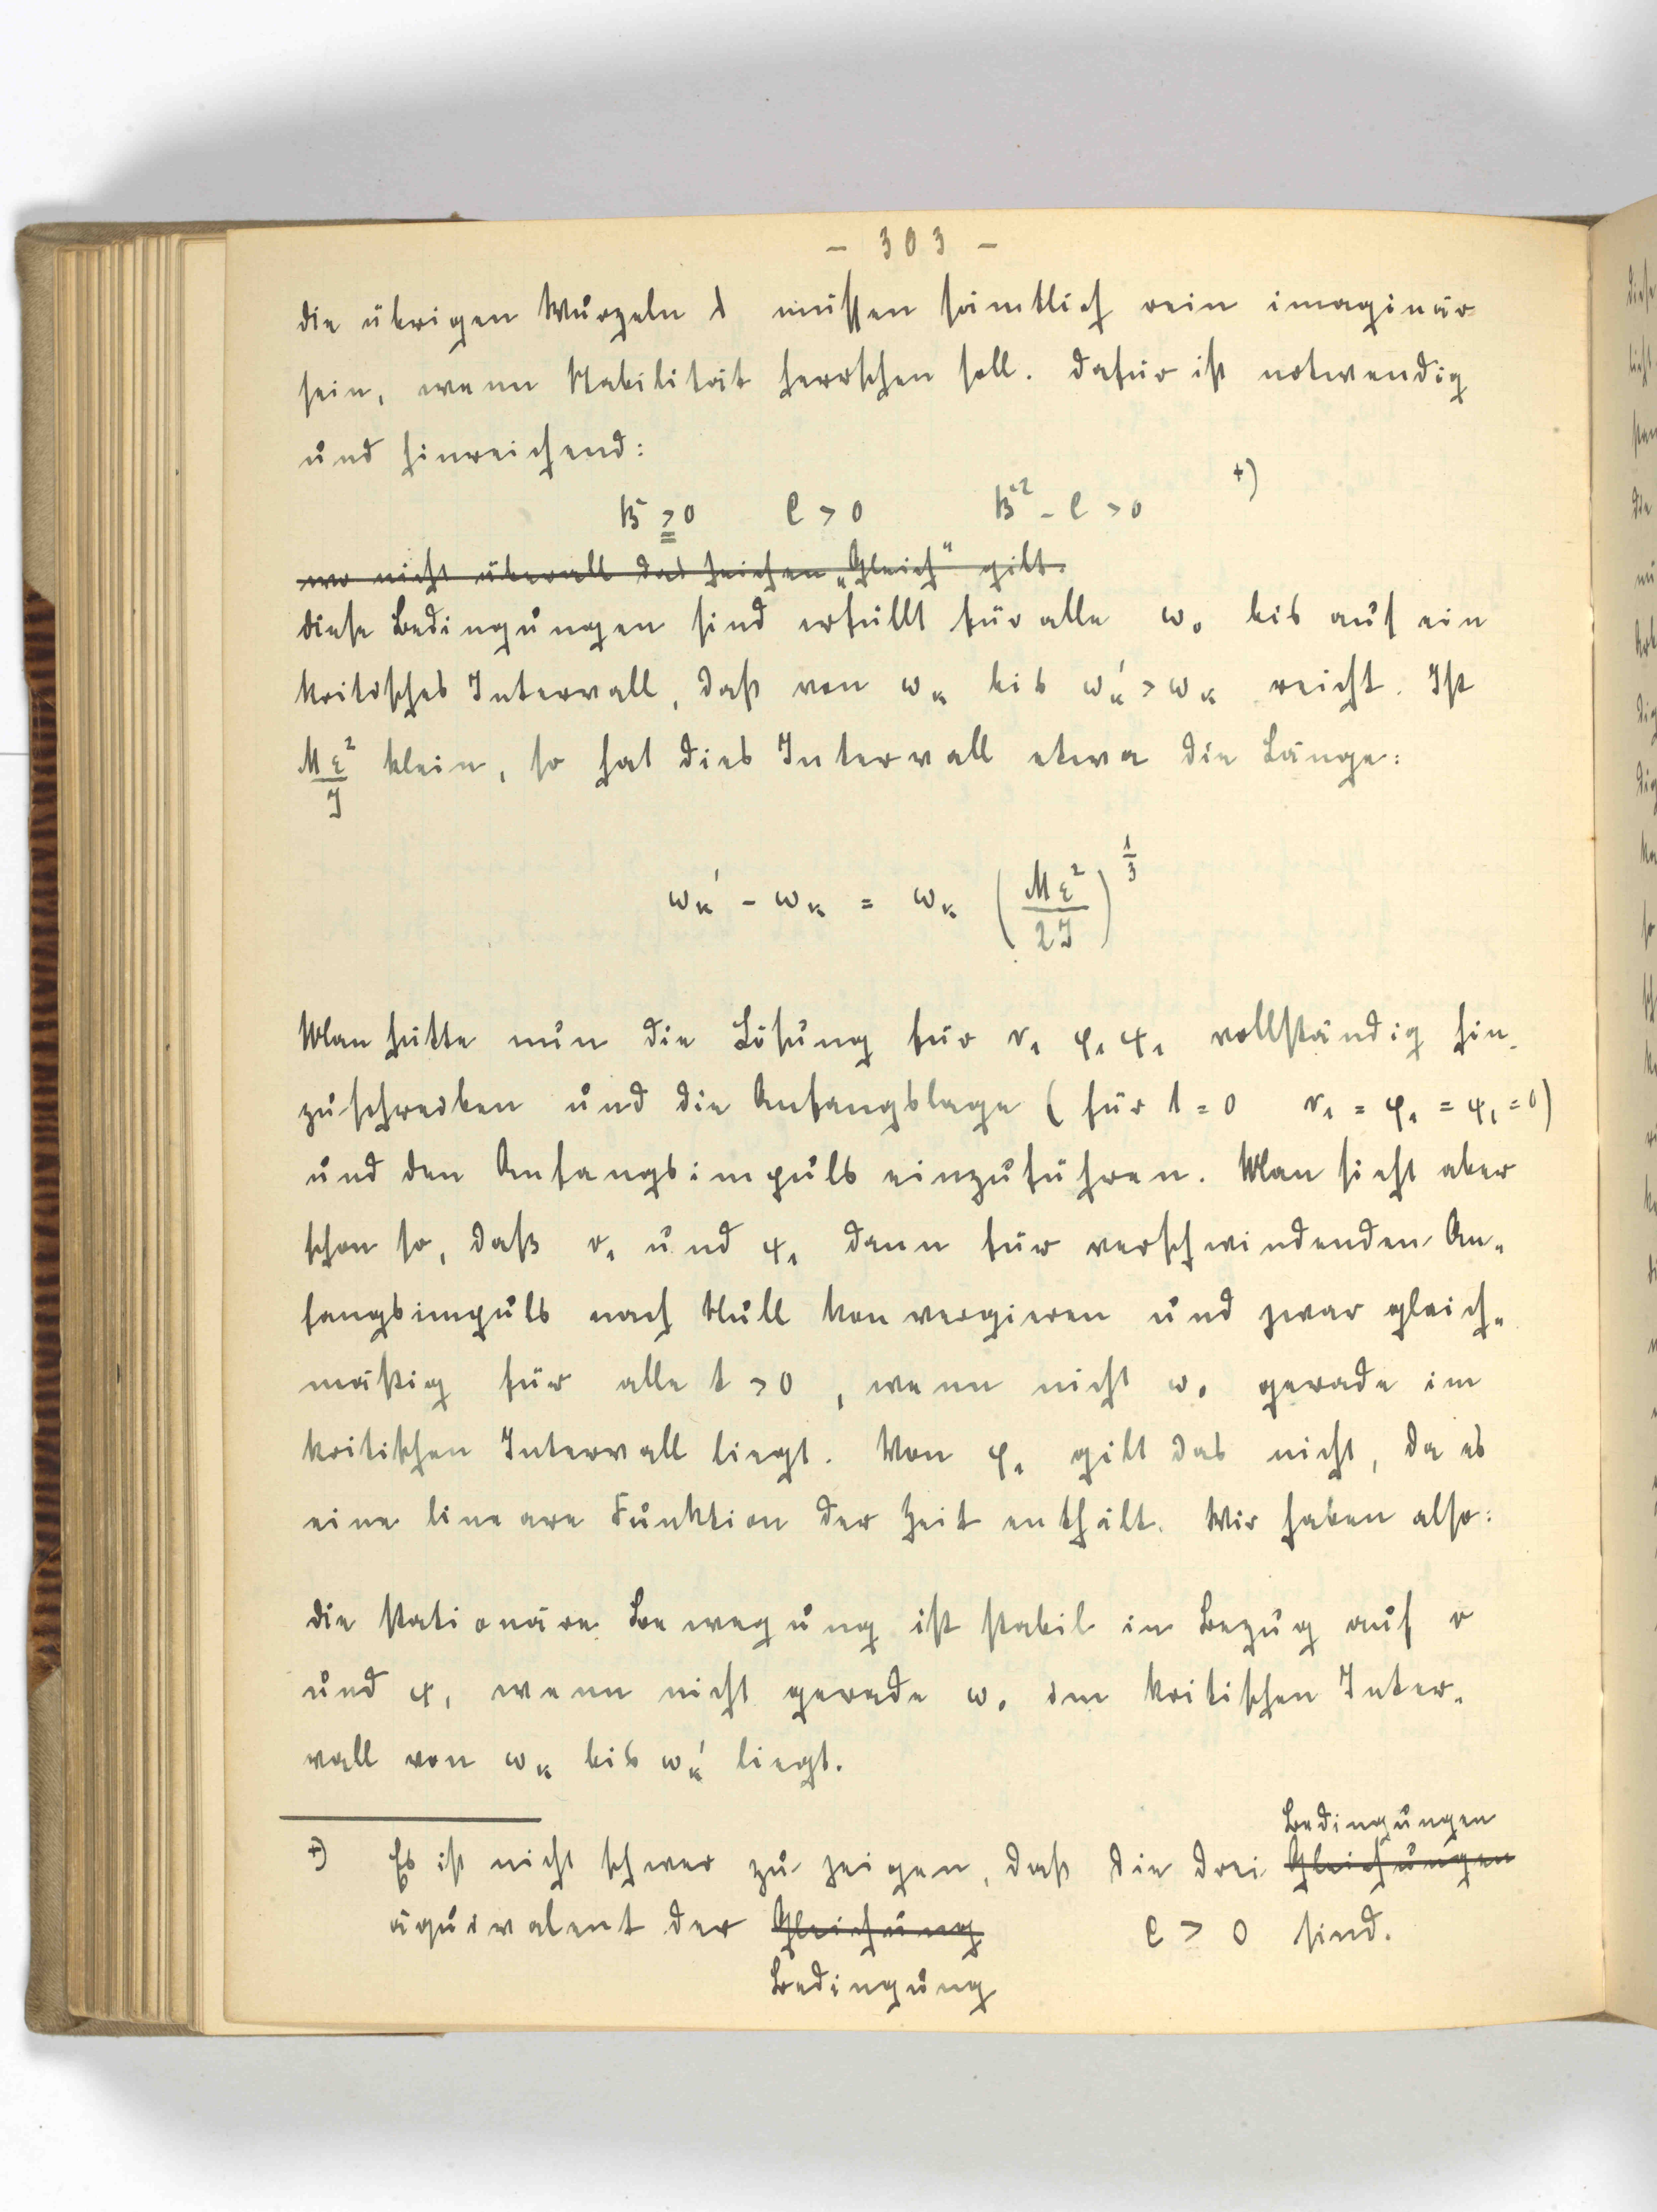 - 303 -
die übrigen Wurzeln λ müssen sämtlich rein imaginär
sein, wenn Stabilität herrschen soll. Dafür ist notwendig
und hinreichend:
B ≧ 0   C > 0   B² - C > 0   +)
wo nicht überall das Zeichen „Gleich“ gilt.
diese Bedingungen sind erfüllt für alle ω₀ bis auf ein
kritisches Intervall, daß von ωₖ bis ωₖ' > ωₖ reicht. Ist
Mε²/J klein, so hat dies Intervall etwa die Länge:
ωₖ' - ωₖ = ωₖ (Mε²/2J)^1/3
Man hätte nun die Lösung für r₁ φ₁ ψ₁ vollständig hin-
zuschreiben und die Anfangslage (für t = 0   r₁ = φ₁ = ψ₁ = 0)
und den Anfangsimpuls einzuführen. Man sieht aber
schon so, daß r₁ und ψ₁ dann für verschwindenden An-
fangsimpuls nach Null konvergieren und zwar gleich-
mäßig für alle t > 0, wenn nicht ω₀ gerade im
kritischen Intervall liegt. Von φ₁ gilt das nicht, da es
eine lineare Funktion der Zeit enthält. Wir haben also:
die stationäre Bewegung ist stabil in Bezug auf r
und ψ, wenn nicht gerade ω₀ im kritischen Inter-
vall von ωₖ bis ωₖ' liegt.
Bedingungen
+) Es ist nicht schwer zu zeigen, daß die drei Gleichungen
äquivalent der Gleichung   C > 0 sind.
Bedingung